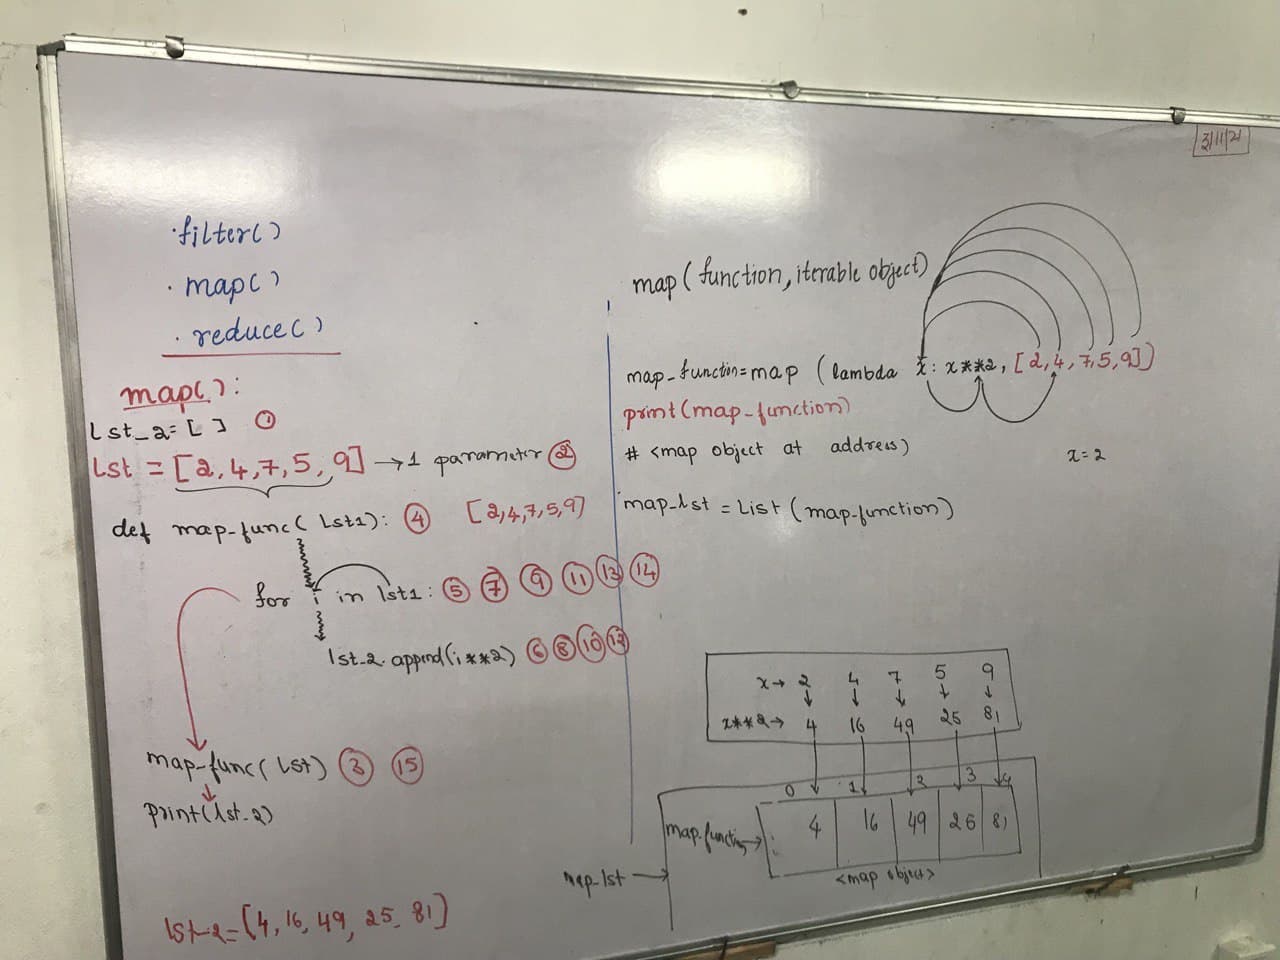 3/11/21
.filter()
. map()
. reduce()
map():
lst_2=[ ] ①
lst = [2,4,7,5,9] → 1 parameter ②
def map_func( lst1): ④ [2,4,7,5,9]
for i in lst1: ⑤ ⑦ ⑨ ⑪ ⑬ ⑭
lst_2.append(i**2) ⑥ ⑧ ⑩ ⑫
map_func( lst) ③ ⑮
print(lst_2)
lst_2=[4, 16, 49, 25, 81]
map(function, iterable object)
map_function=map (lambda x: x**2, [2,4,7,5,9])
print(map_function)
# <map object at address)
x=2
map_lst = List (map_function)
x→ 2 4 7 5 9
x**2→ 4 16 49 25 81
0 1 2 3 4
map_function→ 4 16 49 25 81
<map object>
map_lst →